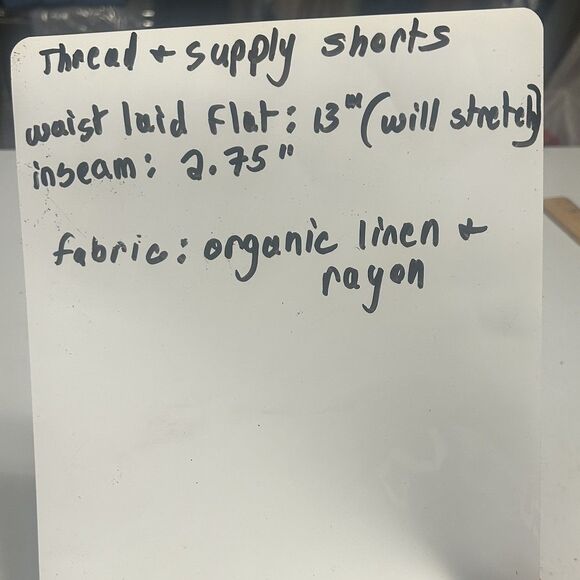 Thread + supply shorts
waist laid flat: 13" (will stretch)
inseam: 2.75"
fabric: organic linen +
rayon